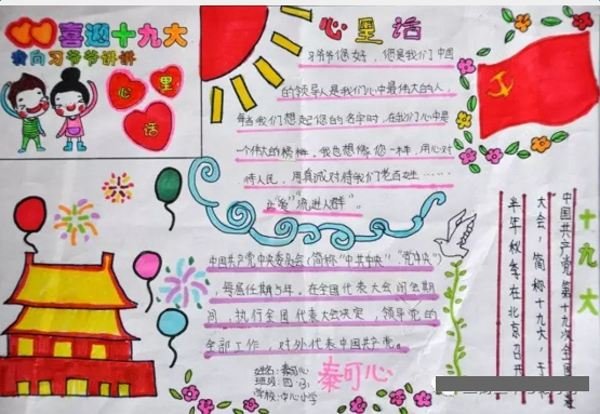 喜迎十九大
我向习爷爷讲讲
心
里
话
心里话
习爷爷您好，您是我们中国
的领导人是我们心中最伟大的人，
每当我们想起您的名字时，在我们心中是
一个伟大的榜样，我也想像您一样，用心对
待人民，用真诚对待我们老百姓……
让"爱"流进人群"
中国共产党中央委员会（简称"中共中央"、"党中央"）
，每届任期5年，在全国代表大会闭会期
间，执行全国代表大会决定，领导党的
全部工作，对外代表中国共产党。
姓名：秦可心
班级：四（3）
学校：中心小学
秦可心
十九大
中国共产党第十九次全国代表
大会，简称十九大，于
半年秋季在北京召开